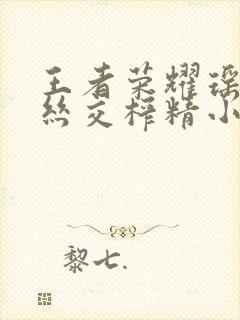 王者荣耀瑶
丝交榨精小
黎七.